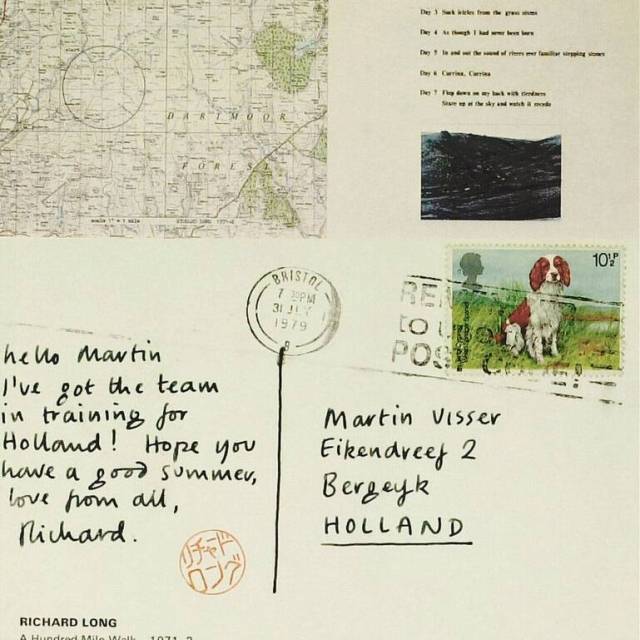 Day 3 Suck icicles from the grass stems
Day 4 As though I had never been born
Day 5 In and out the sound of rivers over familiar stepping stones
Day 6 Corrina, Corrina
Day 7 Flop down on my back with tiredness
Stare up at the sky and watch it recede
start
DARTMOOR
FOREST
scale 1" = 1 mile
BRISTOL
7 30PM
31 JLY
1979
8
10½P
REM
to U
POS CODE!
hello Martin
I've got the team
in training for
Holland! Hope you
have a good summer,
love from all,
Richard.
Martin Visser
Eikendreef 2
Bergeyk
HOLLAND
リチャード
ロング
RICHARD LONG
A Hundred Mile Walk 1971-2